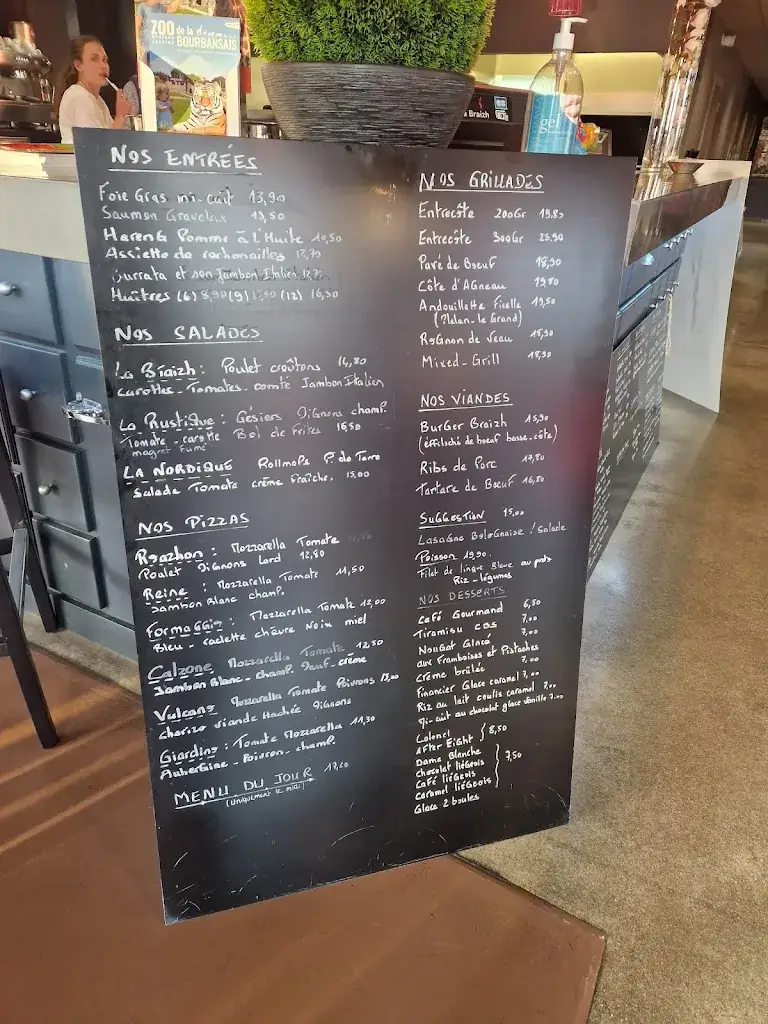 ZOO de la
BOURBANSAIS
Braizh
gel
NOS ENTRÉES
Foie Gras mi-cuit 13,90
Saumon Gravelax 13,50
Hareng Pomme à L'Huile 10,50
Assiette de cochonailles 12,70
Burrata et son Jambon Italien
Huîtres (6) 8,90 (9) (12) 16,50
NOS SALADES
La Braizh : Poulet croûtons 14,80
carottes - Tomates - comté Jambon Italien
La Rustique : Gésiers Oignons champ.
Tomate - carotte Bol de Frites 16,50
magret Fumé
LA NORDIQUE Rollmops P. de Terre
Salade Tomate crème Fraîche. 15,00
NOS PIZZAS
Roazhon : Mozzarella Tomate
Poulet Oignons Lard 12,80
Reine : Mozzarella Tomate 11,50
Jambon Blanc champ.
Formaggio : Mozzarella Tomate 12,00
Bleu - raclette chèvre Noix miel
Calzone Mozzarella Tomate 12,50
Jambon Blanc - champ. Oeuf - crème
Vulcano Mozzarella Tomate Poivrons 13,00
chorizo viande Hachée Oignons
Giardino : Tomate Mozzarella 11,50
Aubergine - Poivron - champ.
MENU DU JOUR
(Uniquement le midi)
NOS GRILLADES
Entrecôte 200Gr 19.80
Entrecôte 300Gr 25.90
Pavé de Boeuf 18,90
Côte d'Agneau 19,80
Andouillette Ficelle 19,50
Rognon de Veau 18,90
Mixed - Grill 18,90
NOS VIANDES
Burger Braizh 15,90
(effiloché de boeuf basse-côte)
Ribs de Porc 17,80
Tartare de Boeuf 16,80
SUGGESTION 15,00
Lasagne Bolognaise / Salade
Poisson 19,90
Filet de Lingue Bleue au pesto
Riz - légumes
NOS DESSERTS
Café Gourmand 6,50
Tiramisu CBS 7,00
Nougat Glacé 7,00
aux Framboises et Pistaches
crème brûlée 7,00
Financier Glace caramel 7,00
Riz au lait coulis caramel 7,00
Mi-cuit au chocolat glace vanille 7,00
Colonel
After Eight } 8,50
Dame Blanche
chocolat liégeois
Café liégeois 7,50
Caramel liégeois
Glace 2 boules